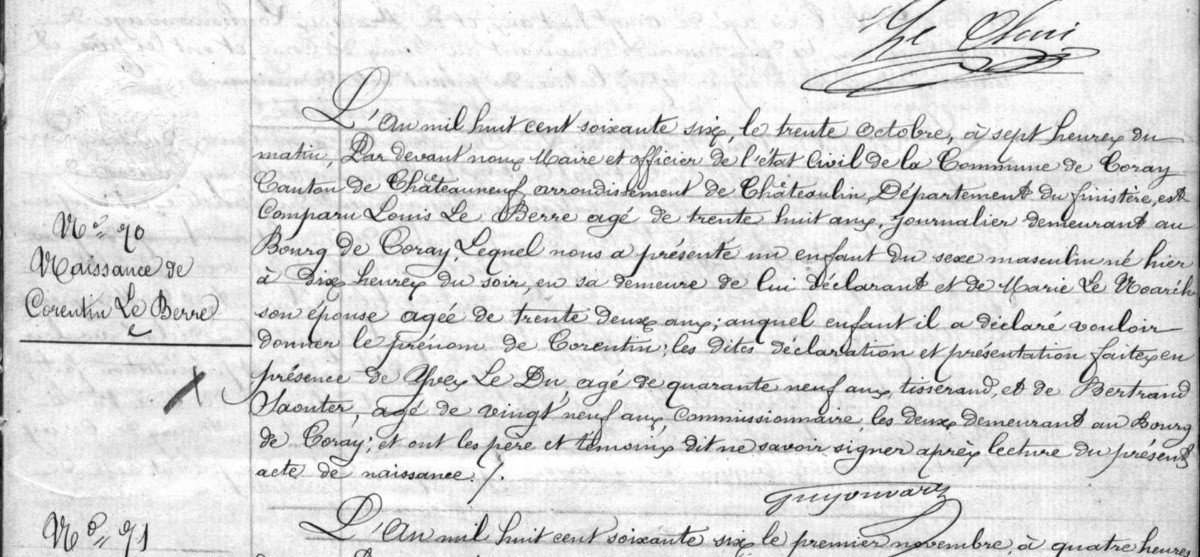 Le
L'An mil huit cent soixante six, le trente octobre, à sept heures du
matin, Par devant nous Maire et officier de l'état Civil de la Commune de Coray
Canton de Châteauneuf arrondissement de Châteaulin, Département du finistère, est
Comparu Louis Le Berre agé de trente huit ans, Journalier demeurant au
Bourg de Coray, Lequel nous a présenté un enfant du sexe masculin né hier
à dix heures du soir, en sa demeure de lui déclarant et de Marie Le Noarih
son épouse agée de trente deux ans; auquel enfant il a déclaré vouloir
donner le prénom de Corentin; les dites déclaration et présentation faites en
présence de Yves Le Du agé de quarante neuf ans, tisserand, et de Bertrand
Saouter, agé de vingt neuf ans, commissionnaire, les deux demeurant au Bourg
de Coray; et ont les père et témoins dit ne savoir signer après lecture du présent
acte de naissance ./.
Guyonvarh
N° 70
Naissance de
Corentin Le Berre
N° 71
L'An mil huit cent soixante six le premier novembre, à quatre heures